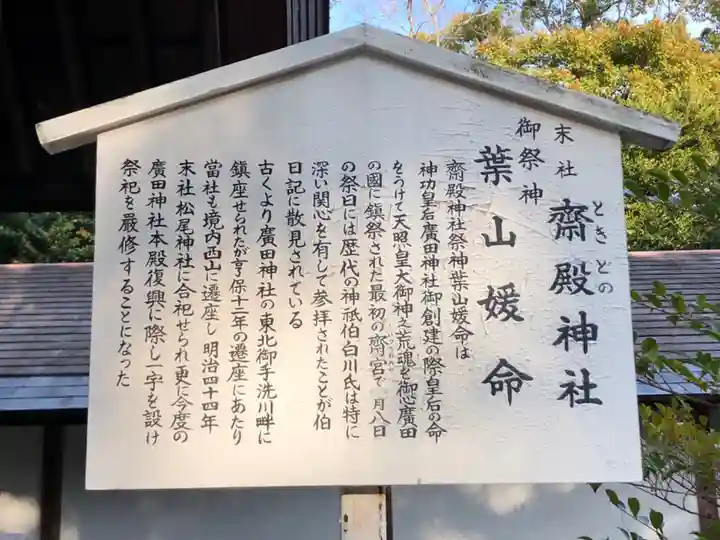 末社 齋殿神社
ときどの
御祭神 葉山媛命
齋殿神社祭神葉山媛命は
神功皇后廣田神社御創建の際皇后の命
をうけて天照皇大御神之荒魂を御心廣田
の國に鎮祭された最初の齋宮で 月八日
の祭日には歴代の神祇伯白川氏は特に
深い関心を有して参拝されたことが伯
日記に散見されている
古くより廣田神社の東北御手洗川畔に
鎮座せられたが享保十二年の遷座にあたり
當社も境内西山に遷座し明治四十四年
末社松尾神社に合祀せられ更に今度の
廣田神社本殿復興に際し一宇を設け
祭祀を厳修することになった